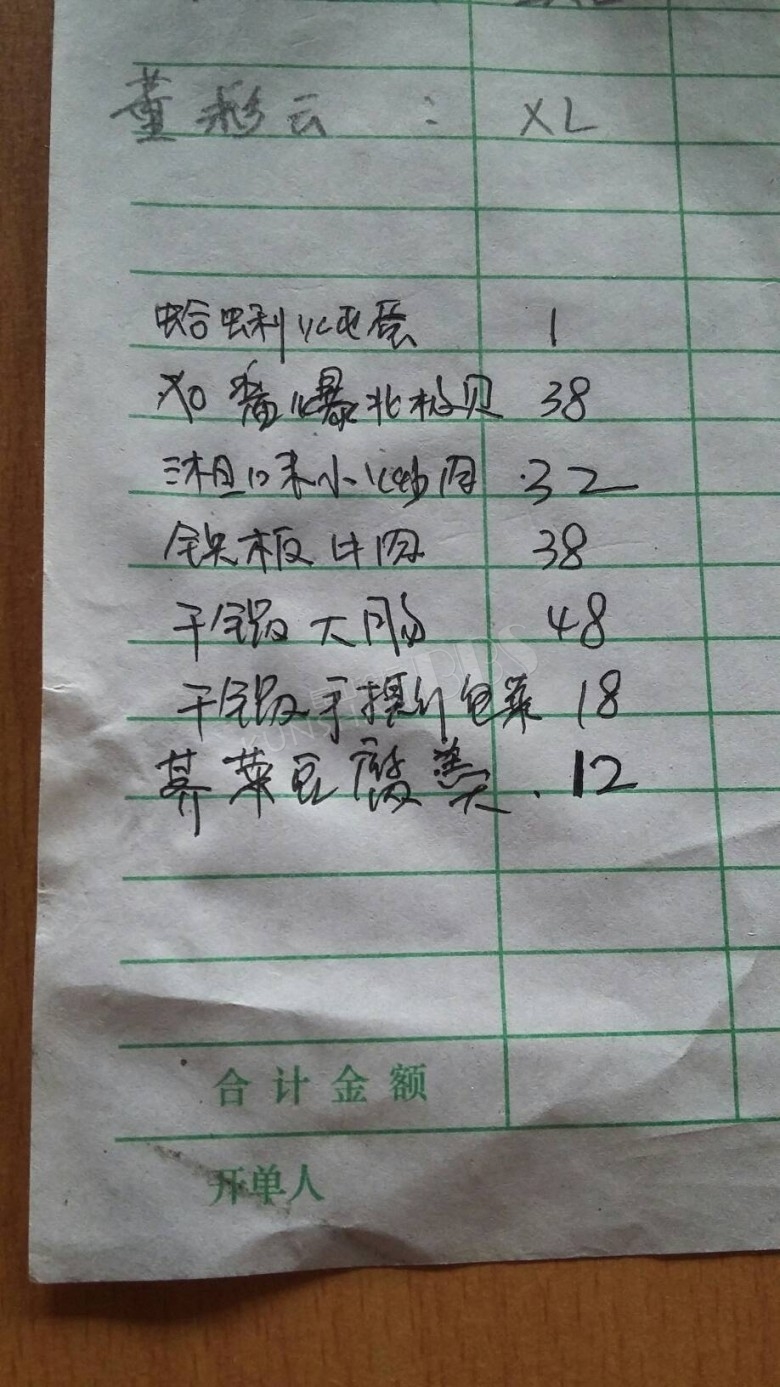 董彩云 : XL
蛤蜊炖蛋 1
XO酱爆北极贝 38
湘味小炒肉 32
铁板牛肉 38
干锅大肠 48
干锅手撕包菜 18
荠菜豆腐羹. 12
合计金额
开单人